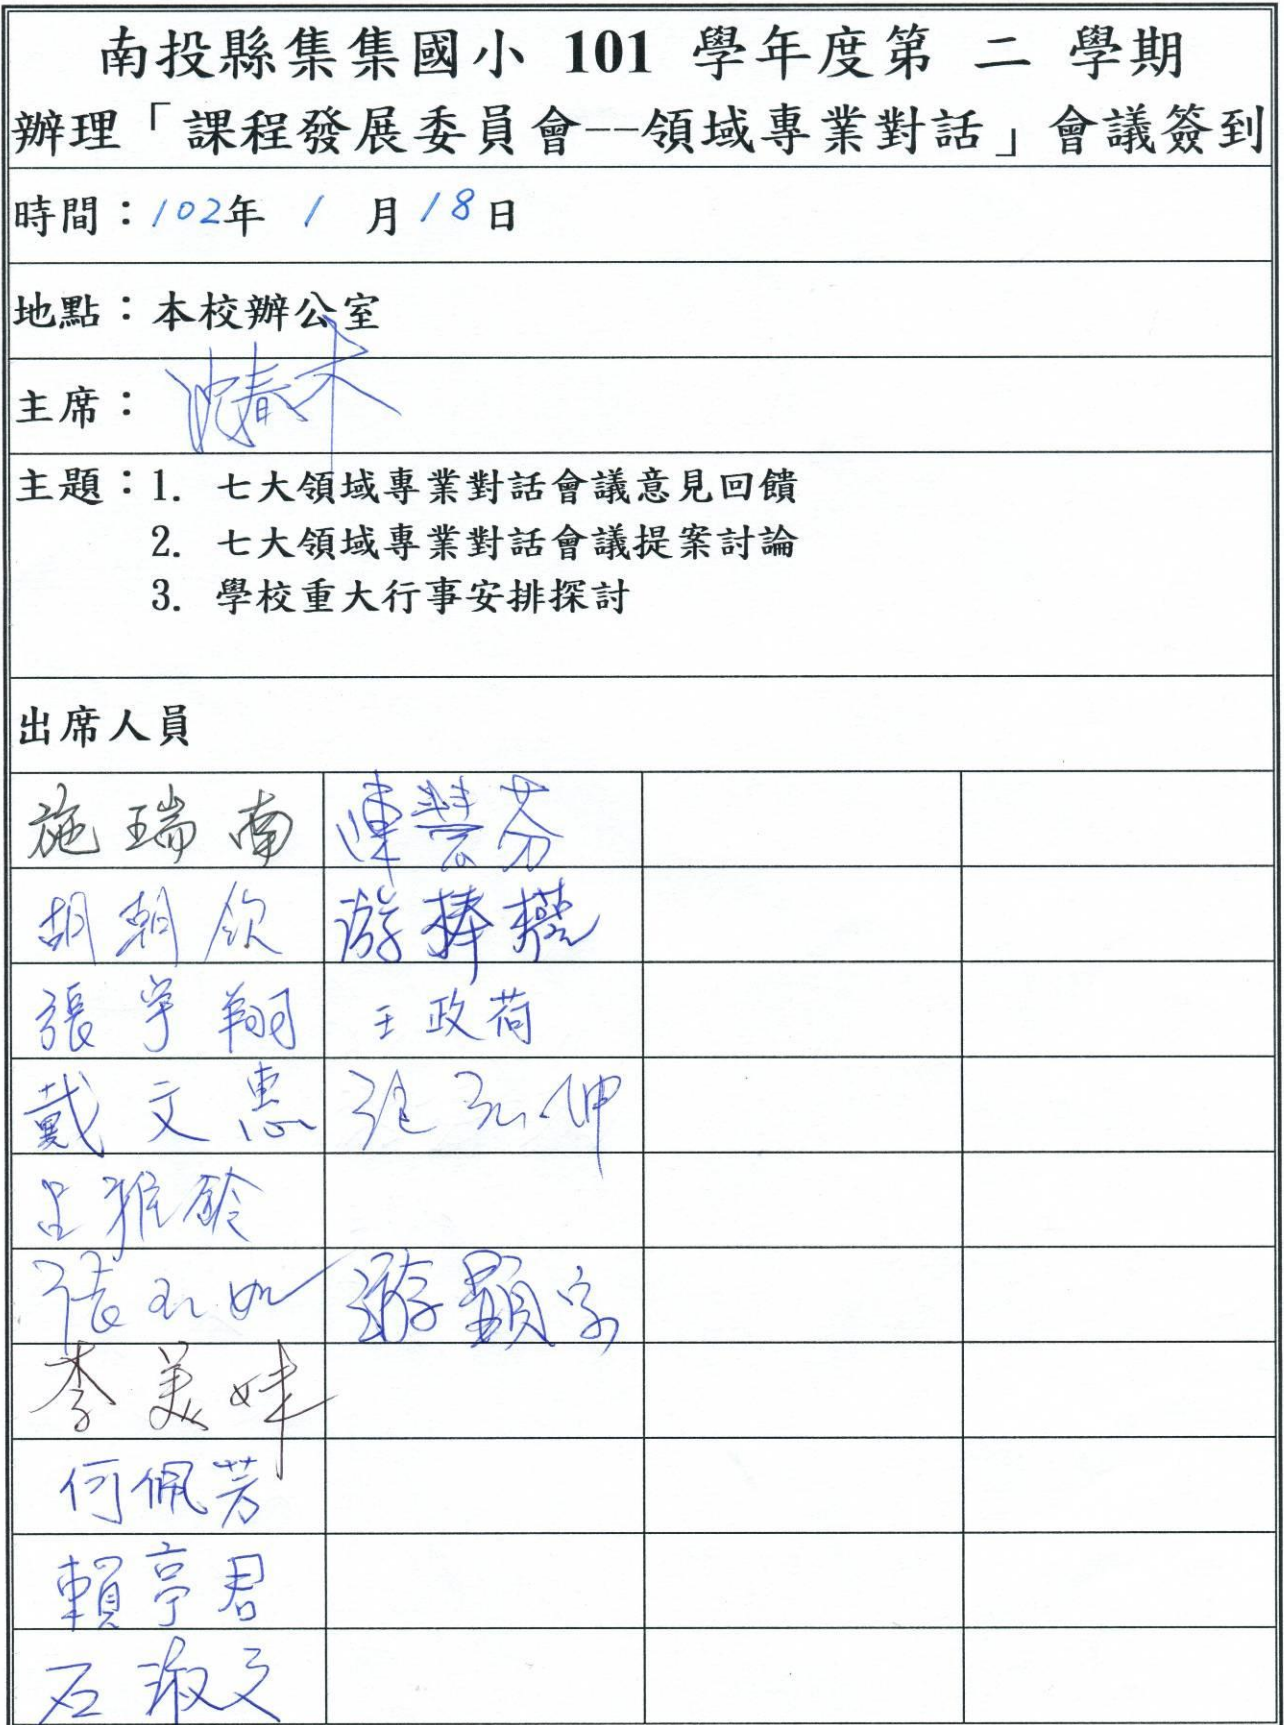 南投縣集集國小 101 學年度第 二 學期
辦理「課程發展委員會--領域專業對話」會議簽到
時間：102年 1 月 18 日
地點：本校辦公室
主席：沈春木
主題：1. 七大領域專業對話會議意見回饋
2. 七大領域專業對話會議提案討論
3. 學校重大行事安排探討
出席人員
施瑞南 連慧芬
胡朝欽 游捧
張宇翔 王政荷
戴文惠
呂雅鈴
張 如 游顯
李美
何佩芳
賴亭君
石淑文